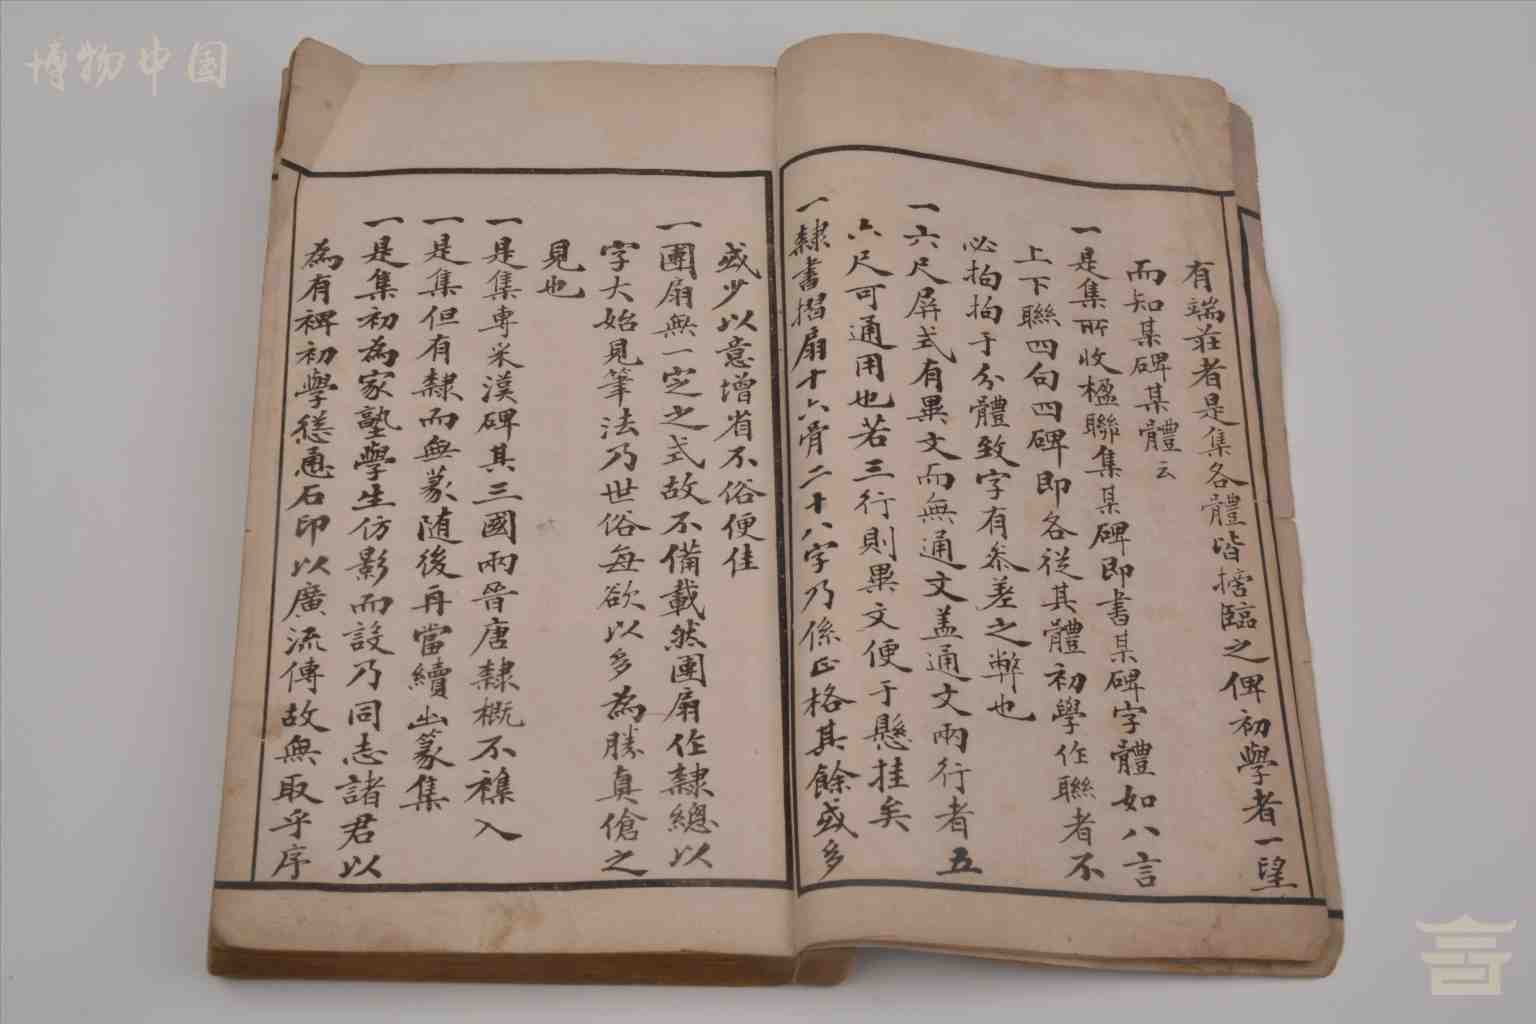 博物中国
有端莊者是集各體皆搭臨之俾初學者一望
而知某碑某體云
一是集所收楹聯集某碑即書某碑字體如八言
上下聯四句四碑即各從其體初學作聯者不
必拘拘于分體致字有參差之弊也
一六尺屏式有異文而無通文蓋通文兩行者五
六尺可通用也若三行則異文便于懸挂矣
一隸書摺扇十六骨二十八字乃係正格其餘或多
或少以意增省不俗便佳
一團扇無一定之式故不備載然團扇作隸總以
字大始見筆法乃世俗每欲以多為勝真傖之
見也
一是集專采漢碑其三國兩晉唐隸概不襍入
一是集但有隸而無篆隨後再當續出篆集
一是集初為家塾學生仿影而設乃同志諸君以
為有裨初學慫恿石印以廣流傳故無取乎序